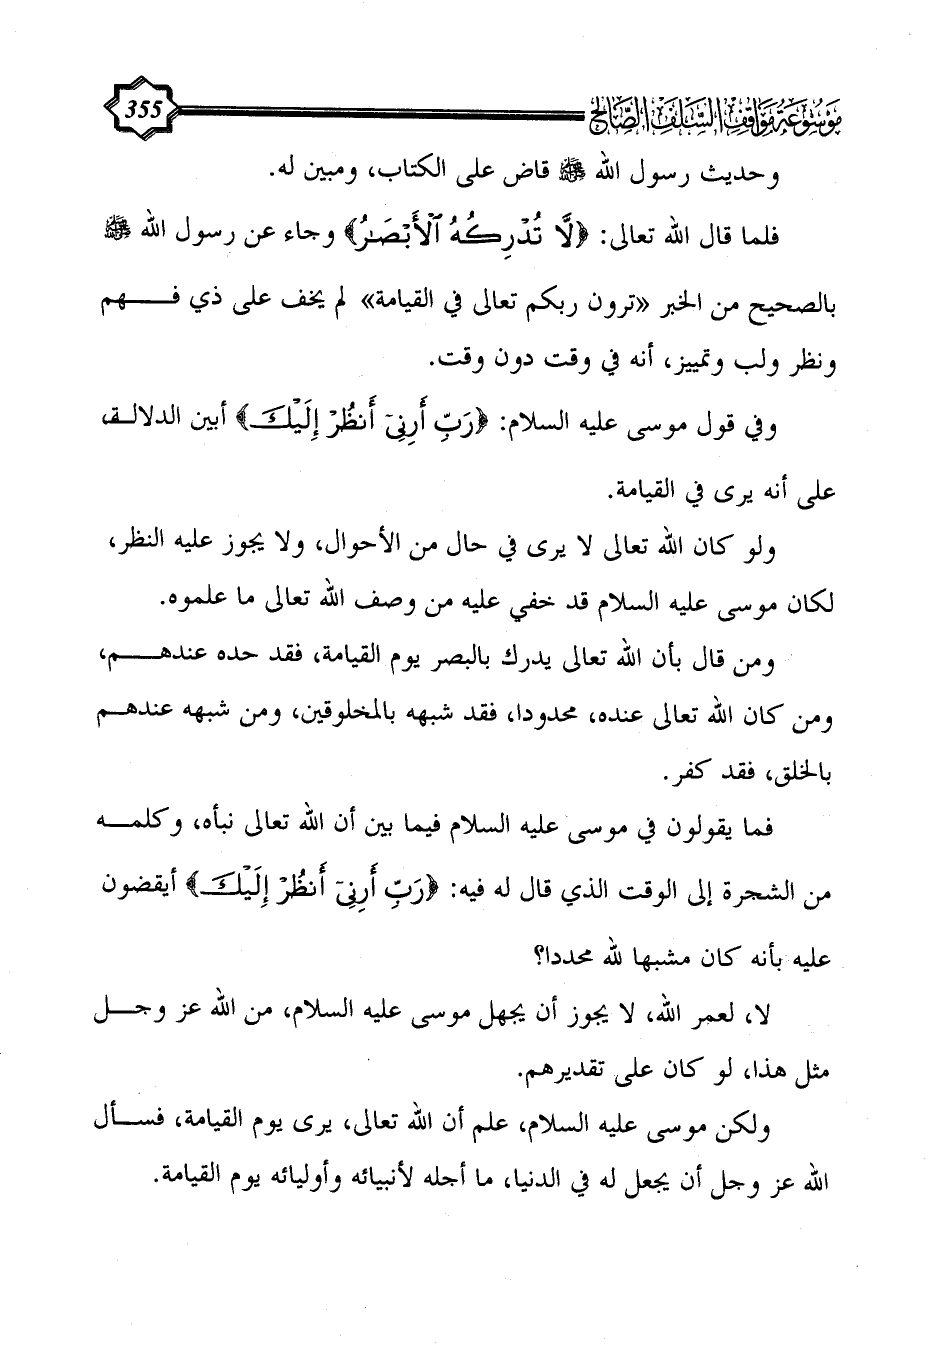 موسوعة مواقف السلف الصالح 355
وحديث رسول الله ﷺ قاض على الكتاب، ومبين له.
فلما قال الله تعالى: ﴿لَّا تُدْرِكُهُ ٱلْأَبْصَٰرُ﴾ وجاء عن رسول الله ﷺ
بالصحيح من الخبر «ترون ربكم تعالى في القيامة» لم يخف على ذي فـهم
ونظر ولب وتمييز، أنه في وقت دون وقت.
وفي قول موسى عليه السلام: ﴿رَبِّ أَرِنِىٓ أَنظُرْ إِلَيْكَ﴾ أبين الدلالـة
على أنه يرى في القيامة.
ولو كان الله تعالى لا يرى في حال من الأحوال، ولا يجوز عليه النظر،
لكان موسى عليه السلام قد خفي عليه من وصف الله تعالى ما علموه.
ومن قال بأن الله تعالى يدرك بالبصر يوم القيامة، فقد حده عندهـم،
ومن كان الله تعالى عنده، محدودا، فقد شبهه بالمخلوقين، ومن شبهه عندهـم
بالخلق، فقد كفر.
فما يقولون في موسى عليه السلام فيما بين أن الله تعالى نبأه، وكلمـه
من الشجرة إلى الوقت الذي قال له فيه: ﴿رَبِّ أَرِنِىٓ أَنظُرْ إِلَيْكَ﴾ أيقضون
عليه بأنه كان مشبها لله محددا؟
لا، لعمر الله، لا يجوز أن يجهل موسى عليه السلام، من الله عز وجـل
مثل هذا، لو كان على تقديرهم.
ولكن موسى عليه السلام، علم أن الله تعالى، يرى يوم القيامة، فسـأل
الله عز وجل أن يجعل له في الدنيا، ما أجله لأنبيائه وأوليائه يوم القيامة.